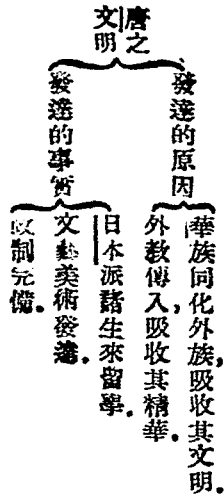 唐之
文明
發達的原因
華族同化外族,吸收其文明.
外教傳入,吸收其精華.
發達的事實
日本派諸生來留學.
文藝美術發達.
政制完備.